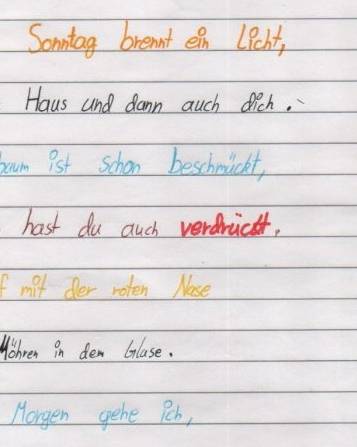 Sonntag brennt ein Licht,
Haus und dann auch dich.
baum ist schon beschmückt,
hast du auch verdrückt.
f mit der roten Nase
Möhren in dem Glase.
Morgen gehe ich,